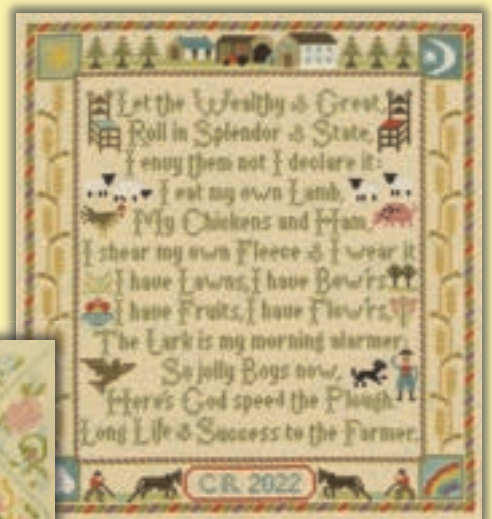 Let the Wealthy & Great,
Roll in Splendor & State,
I envy them not I declare it:
I eat my own Lamb,
My Chickens and Ham,
I shear my own Fleece & I wear it
I have Lawns, I have Bow'rs
I have Fruits, I have Flow'rs,
The Lark is my morning alarmer;
So jolly Boys now,
Here's God speed the Plough
Long Life & Success to the Farmer.
C.R. 2022